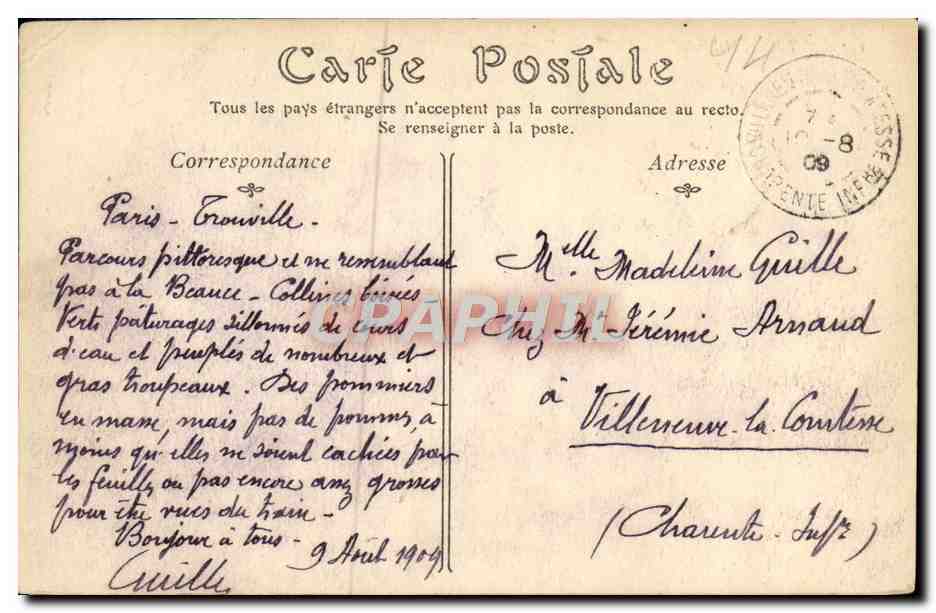 Carte Postale
Tous les pays étrangers n'acceptent pas la correspondance au recto.
Se renseigner à la poste.
Correspondance
Paris - Trouville -
Parcours pittoresque et ne ressemblant
pas à la Beauce - Collines boisées
Verts pâturages sillonnés de cours
d'eau et peuplés de nombreux et
gras troupeaux. Des pommiers
en masse, mais pas de pommes, à
moins qu'elles ne soient cachées par
les feuilles ou pas encore assez grosses
pour être vues du train -
Bonjour à tous -
9 Août 1909
Guille
Adresse
Melle Madeleine Guille
Chez Mr Jérémie Arnaud
à
Villeneuve-la-Comtesse
(Charente-Infre)
7
10 -8
09
CPAPHIL